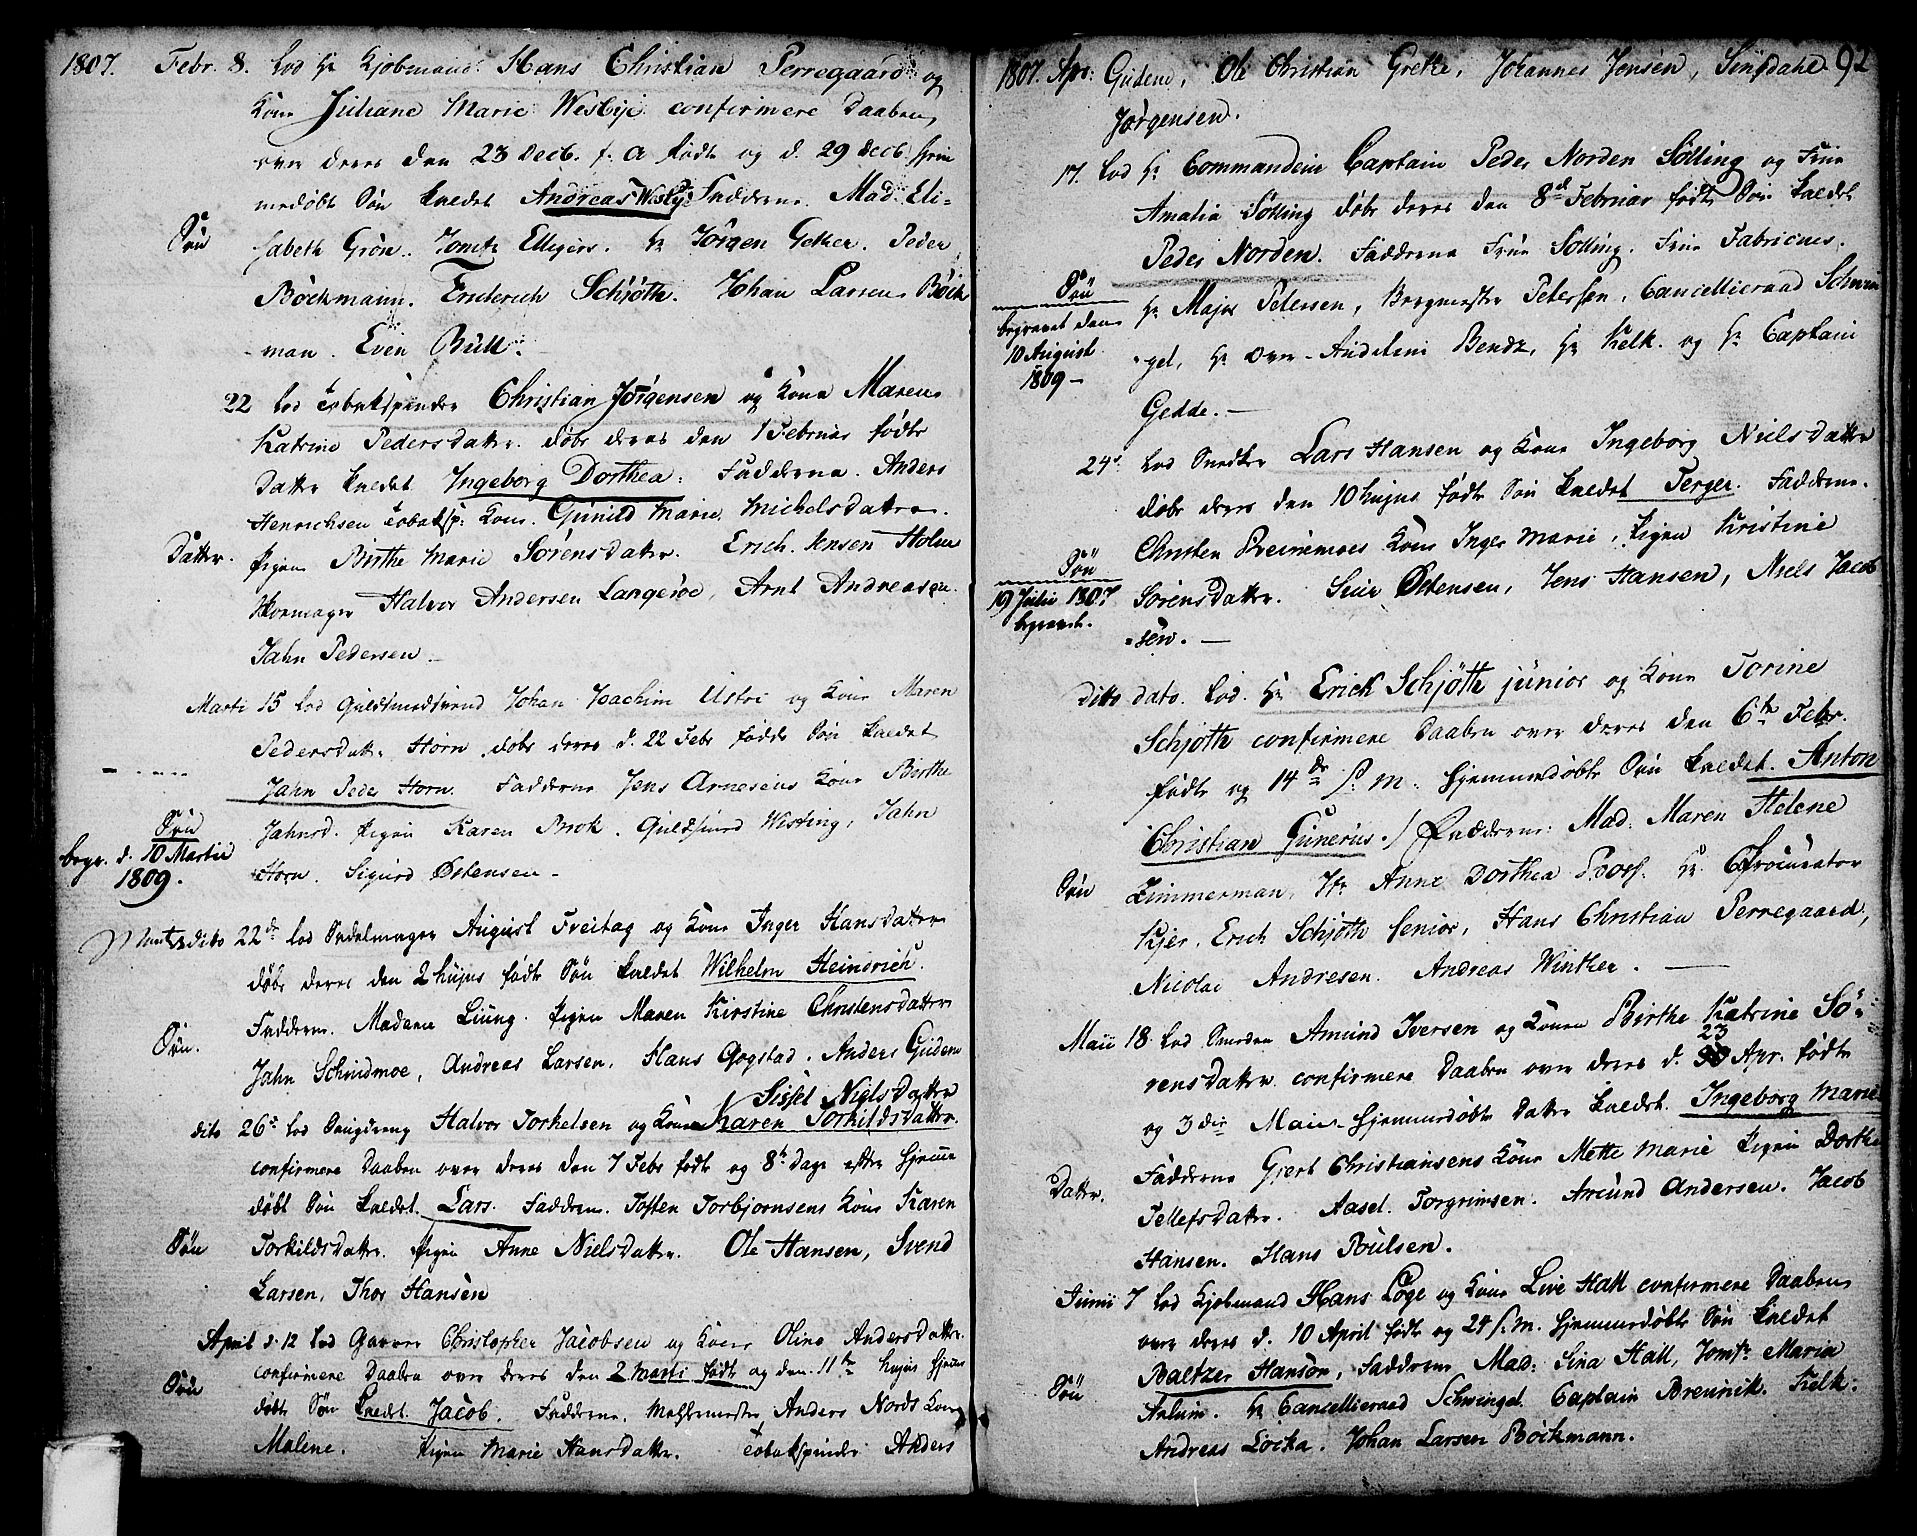 1807. Febr. 8. Lod Hr Kjøbmand Hans Christian Perregaard og
Kone Juliane Marie Wesbye confirmere Daaben
over deres den 23 Decb. f. a født og d. 29 Decb. hjem
medøbt Søn kaldet Andreas Wesbye Fadderne. Mad. Eli-
Søn
sabeth Grøn. Jomfr Ellegers. Hr Jørgen Gether. Peder
Bøckmann. Friderich Schjøth. Johan Larsen Bøck
man. Even Bull.
22 Lod Tobakspinder Christian Jørgensen og Kone Maren
Katrine Pedersdatter døbe deres den 1 Februar fødte
Datter kaldet Ingeborg Dorthea. Fadderne. Anders
Henrichsen Tobaksp: Kone. Gunild Marie Michelsdatter.
Datter.
Pigen Birthe Marie Sørensdatter. Erich Jensen Holm
Skomager Halvor Andersen Langerøe, Arnt Andreasen
Jahn Pedersen
Marti 15 Lod Guldsmedsvend Johan Joachim Ustri og Kone Maren
Pedersdatter Horn døbe deres d. 22 Febr fødde Søn kaldet
Jahn Peder Horn. Fadderne Jens Arnesens Kone Birthe
Søn
begr. d. 10 Martii
1809.
Jahnsd. Pigen Karen Brok. Guldsmed Westing, Jahn
Horn. Sigurd Østensen
dito 22de lod Sadelmager August Freitag og Kone Inger Hansdatter
døbe deres den 2 hujus født Søn kaldet Wilhelm Heinrich.
Fadderne. Madame Liung. Pigen Maren Kirstine Christensdatter
Søn.
Jahn Schmidmoe, Andreas Larsen, Hans Gogstad. Anders Gudem
Sissel Nielsdatter
dito 26de lod Halvor Torkelsen og Kone Karen Torkildsdatter
confirmere Daaben over deres den 7 Febr født og 8te Dage efter hjemme
døbt Søn kaldet Lars. Fadderne. Tosten Torbjørnsens Kone Karen
Søn
Torkildsdatter. Pigen Anne Nielsdatter. Ole Hansen, Svend
Larsen, Thor Hansen
April d. 12 lod Garver Christopher Jacobsen og Kone Oline Andersdatter
confirmere Daaben over deres den 2 Marti født og den 11te hujus hjemme
Søn
døbt Søn kaldet Jacob. Fadderne. Anders Nords Kone
Malene. Pigen Marie Hansdatter. Tobakspinder Anders
1807. Apr: Gudem, Ole Christian Grethe, Johannes Jensen, 92
Jørgensen.
17. Lod Hr Commandeur Captain Peder Norden Sølling og Frue
Amalia Sølling døbe deres den 8de Februar født Søn kaldet
Peder Norden. Fadderne Frue Sølling. Frue Fabricius.
Søn
begravet den
10 August
1809
Hr Major Petersen, Borgmester Petersen, Cancelliraad Schwin
gel, Hr Over-Auditeur Bendz, Hr Kelk. og Hr Captain
Gedde.
24de lod Snedker Lars Hansen og Kone Ingeborg Nielsdatter
døbe deres den 10 hujus født Søn kaldet Terger. Fadderne.
Søn
19 Julii 1807
begravet.
Christen Kone Inger Marie, Pigen Kristine
Sørensdatter. Siur Østensen, Jens Hansen, Niels Jacob
sen.
Ditto dato. Lod. Hr Erick Schjøth junior og Kone Torine
Schjøth confirmere Daaben over deres den 6te Febr.
født og 14de s. m. hjemmedøbte Søn kaldet. Anton
Christian Gunerius. Fadderne: Mad. Maren Helene
Søn
Zimmerman, Anne Dorthea Hr. Procurator
Kjer, Erich Schjøth senior, Hans Christian Perregaard,
Nicolai Andresen. Andreas Winther.
Maii 18. Lod Smeden Amund Iversen og Konen Birthe Katrine Sø-
23
rensdatter confirmere Daaben over deres d. Apr. fødte
og 3die Maii hjemmedøbte Datter kaldet. Ingeborg Marie
Datter.
Fadderne Gjert Christiansens Kone Mette Marie Pigen Dorthe
Tellefsdatter. Aasel Torgrimsen. Amund Andersen. Jacob
Hansen. Hans Poulsen.
Junii 7 lod Kjøbmand Hans Loge og Kone Live Hall confirmere Daaben
over deres d. 10 April født og 24 s. m. hjemmedøbte Søn kaldet
Søn
Baltzer Hanson, Fadderne Mad: Sina Hall, Jomfr. Maria
Hr Cancelliraad Schwingel. Captain Brennik. Kelk.
Andreas Løcka. Johan Larsen Bøckmann.